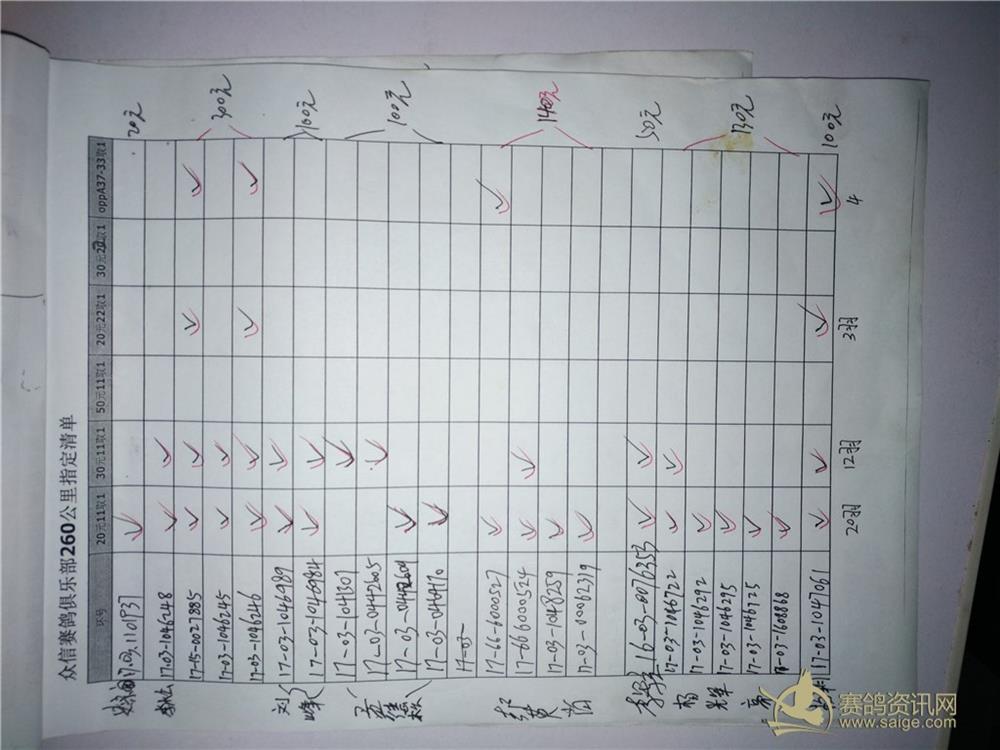 众信赛鸽俱乐部260公里指定清单
环号 20元11取1 30元11取1 50元11取1 20元22取1 30元22取1 oppA37-33取1
17-03-1101937 20元
17-03-1046248
17-15-0027885
17-03-1046245 300元
17-03-1046246
刘 17-03-1046989
峰 17-03-1046984 100元
17-03-1041307
17-03-0442605
17-03-0442604 100元
17-03-0464170
17-03-
17-66-6000527
17-666000524 140元
17-03-1048259
17-03-0002379
16-03-0076353 50元
杨 17-03-1046722
17-03-1046292
17-03-1046295 130元
17-03-1046725
17-03-1608868
17-03-1047061 100元
20羽 12羽 3羽 4
赛鸽资讯网
www.saige.com